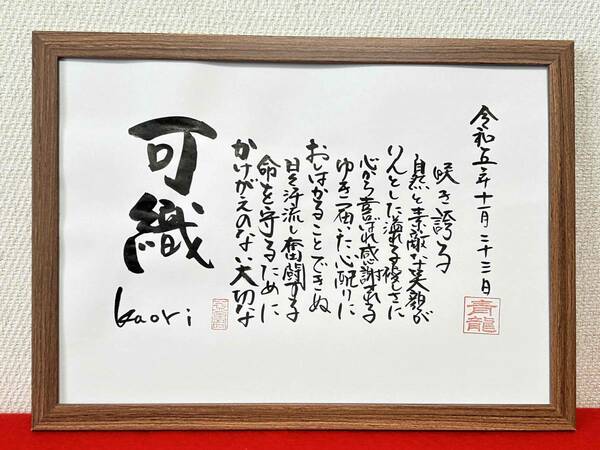 令和五年十一月二十三日
青龍
咲き誇る
自然と素敵な笑顔が
りんとした溢れる優しさに
心から喜ばれ感謝される
ゆき届いた心配りに
おしはかることできぬ
日々汗流し奮闘する
命を守るために
かけがえのない大切な
可織
kaori